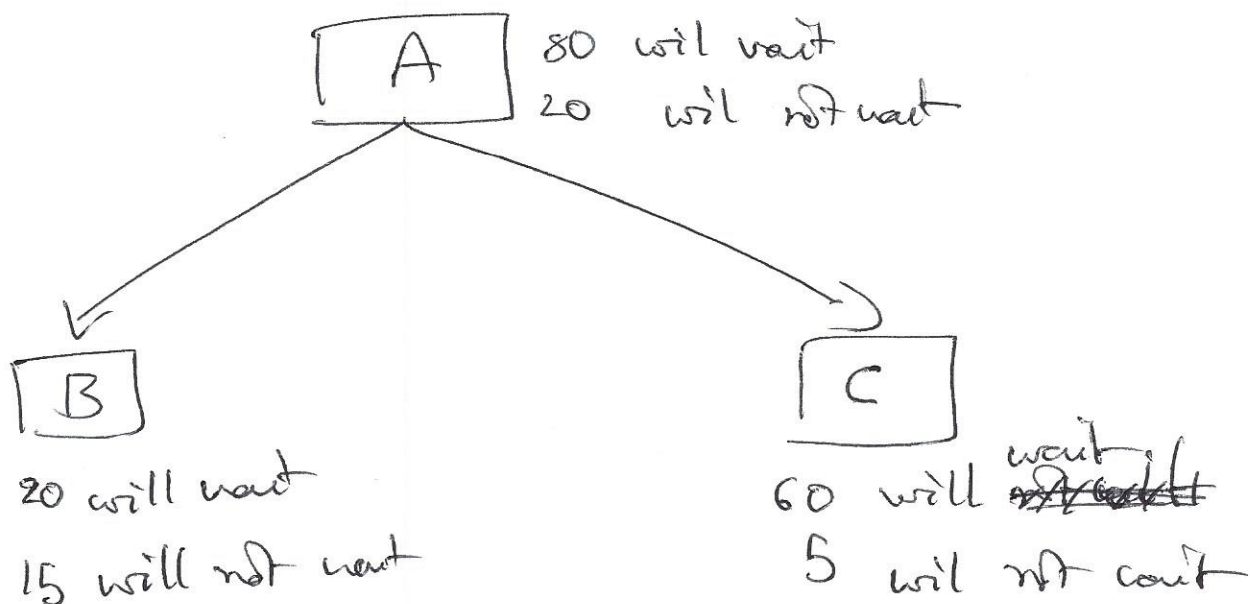 A
80 wil wait
20 wil not wait
B
C
20 will wait
15 will not wait
wait
60 will
5 wil not wait